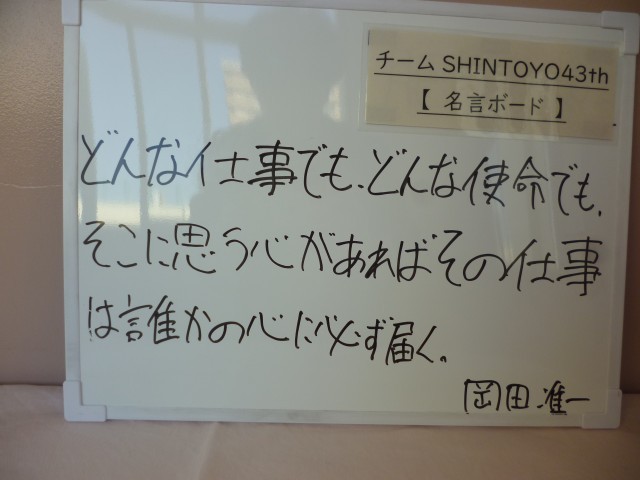 チーム SHINTOYO43th
【 名言ボード 】
どんな仕事でも、どんな使命でも、
そこに思う心があればその仕事
は誰かの心に必ず届く。
岡田准一